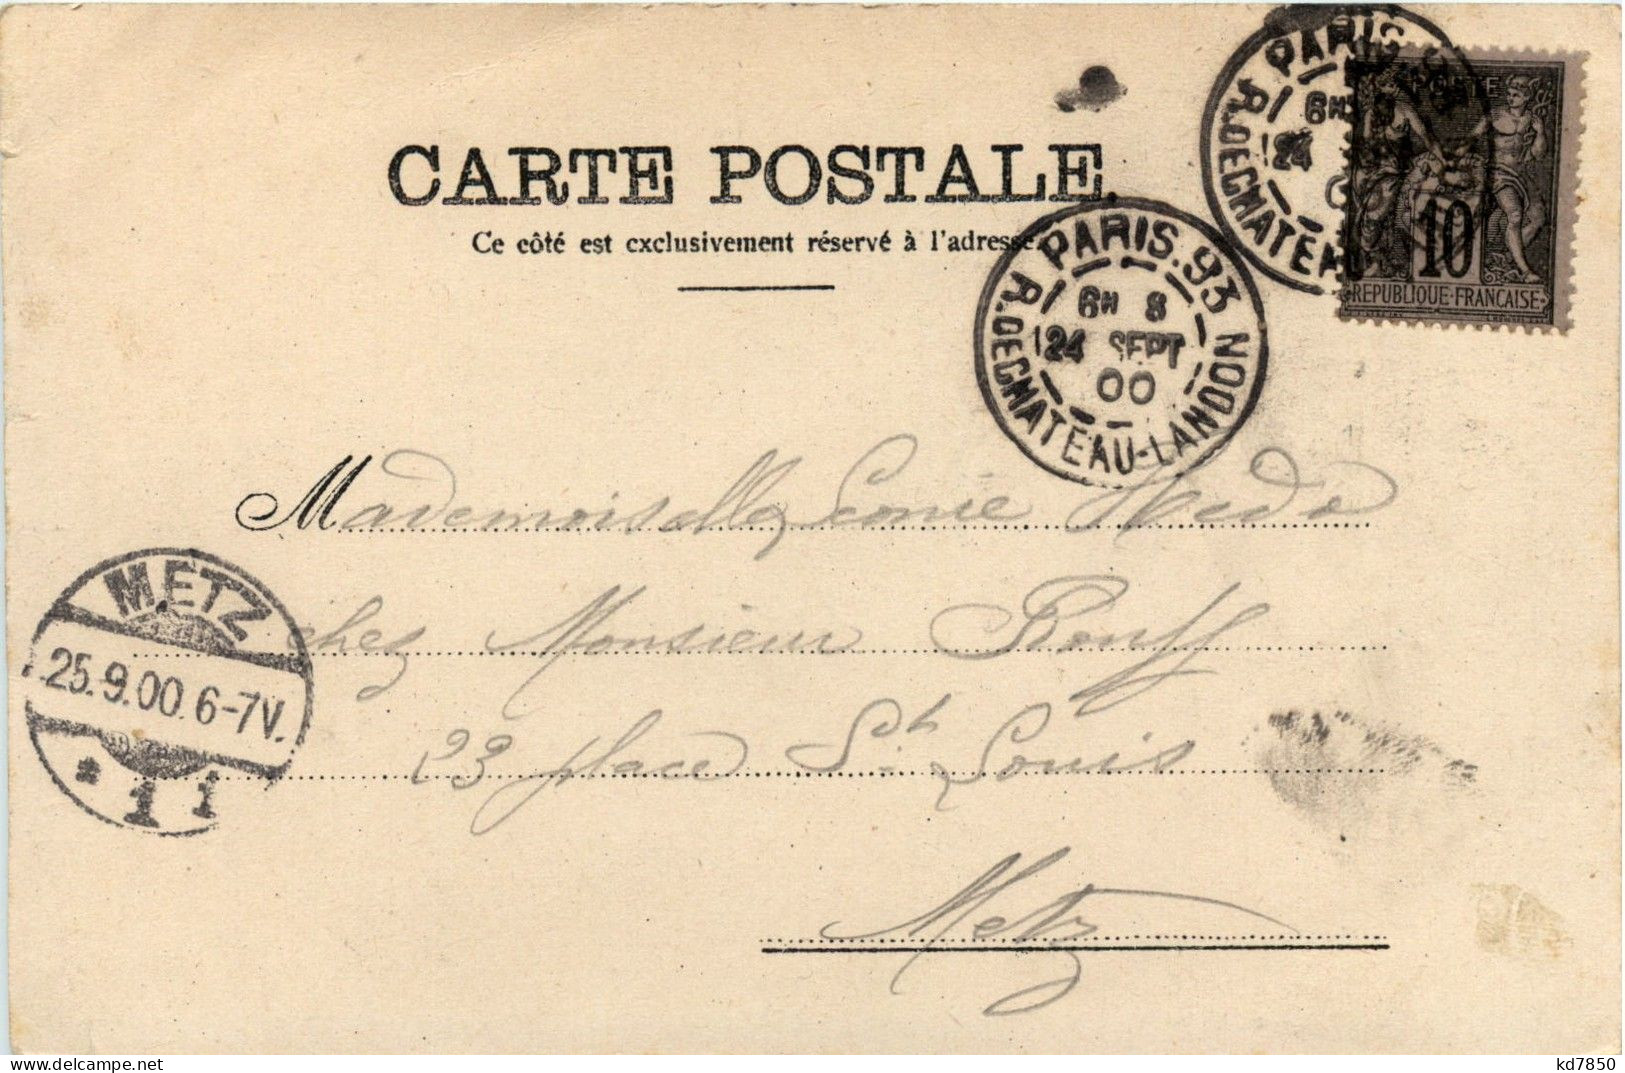 CARTE POSTALE.
Ce côté est exclusivement réservé à l'adresse.
PARIS.93
R. DE CHATEAU-LANDON
6H S
24 SEPT
00
PARIS.93
R. DE CHATEAU
6H
24
POSTE
10
REPUBLIQUE-FRANÇAISE
Mademoiselle Léonie
chez Monsieur
23 place St. Louis
Metz
METZ
25.9.00.6-7V.
* 1 1
delcampe.net
kd7850